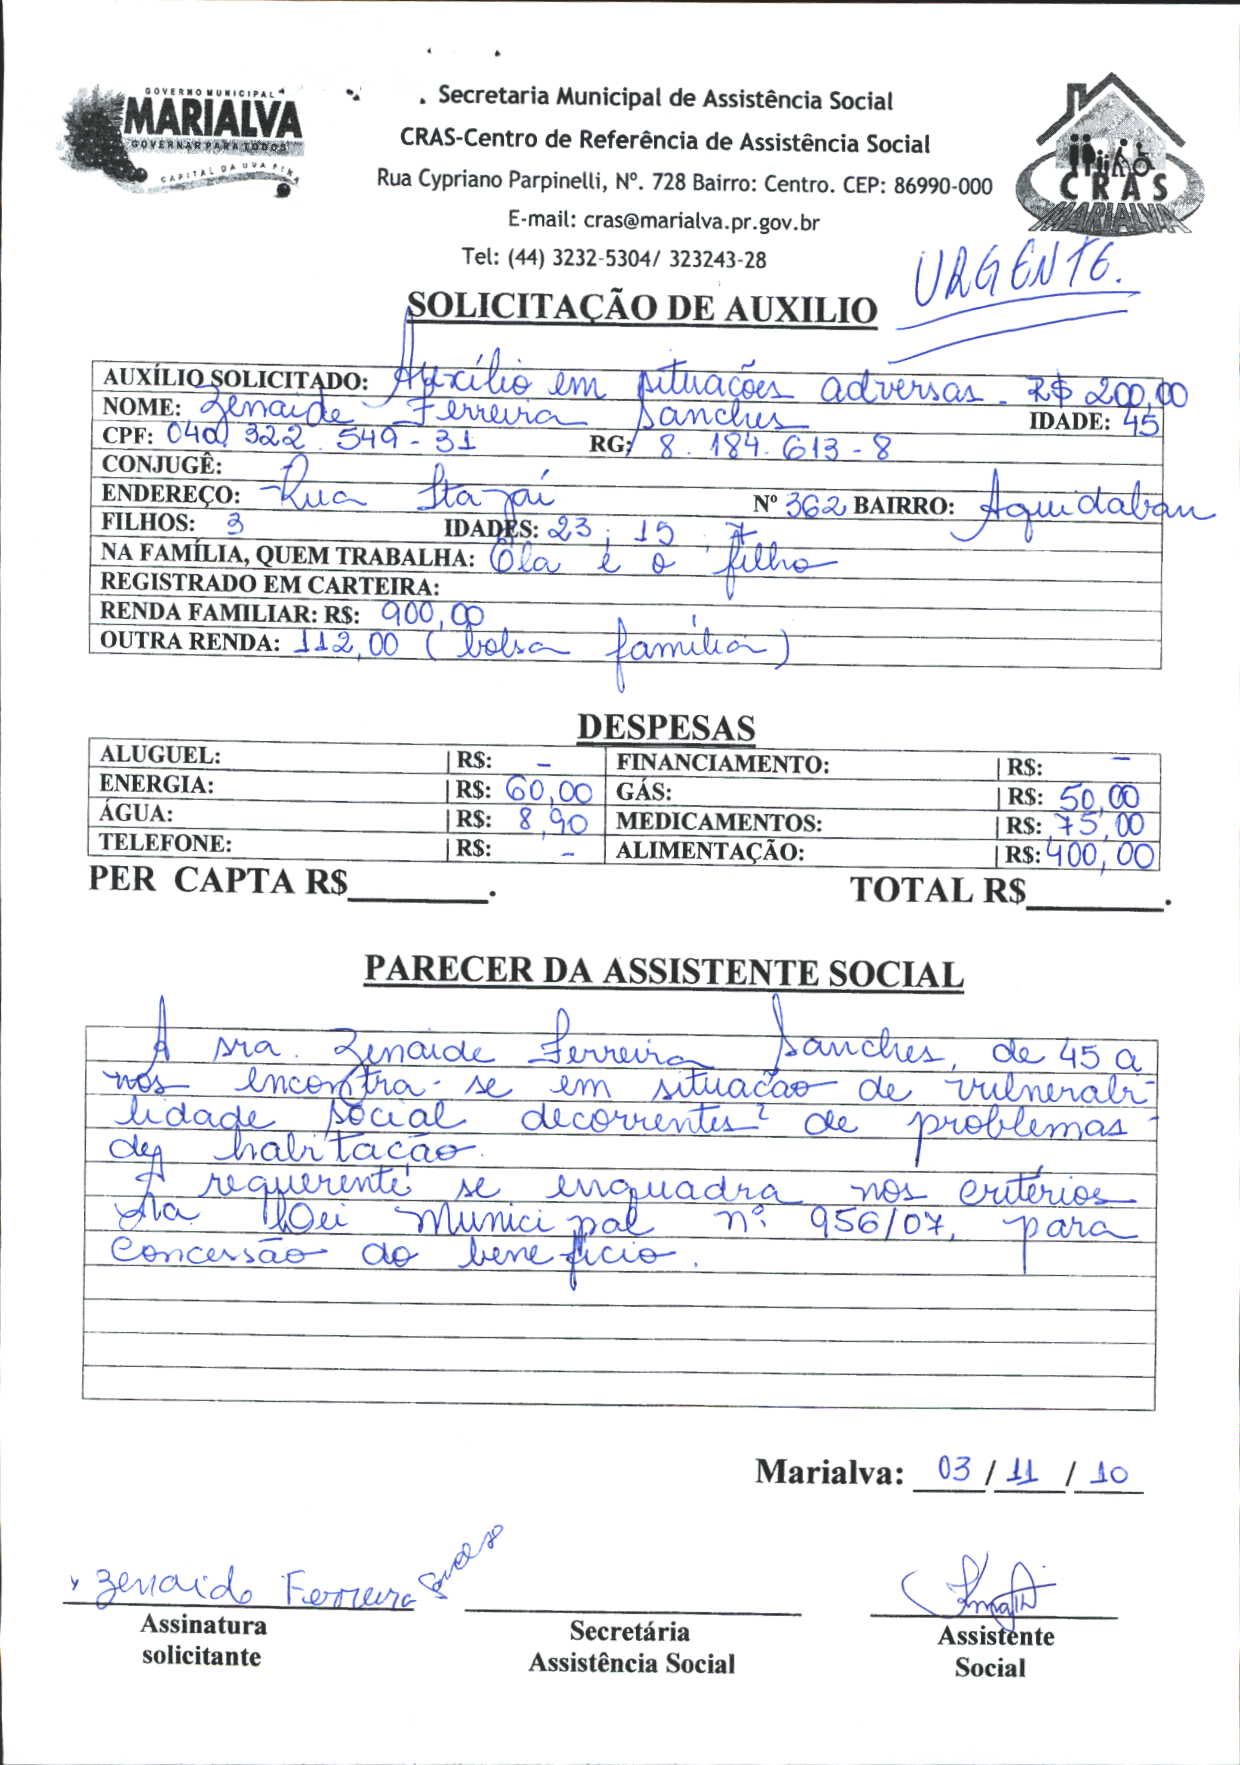 GOVERNO MUNICIPAL
MARIALVA
GOVERNAR PARA TODOS
CAPITAL DA UVA FINA
Secretaria Municipal de Assistência Social
CRAS-Centro de Referência de Assistência Social
Rua Cypriano Parpinelli, Nº. 728 Bairro: Centro. CEP: 86990-000
E-mail: cras@marialva.pr.gov.br
Tel: (44) 3232-5304/ 323243-28
CRAS
MARIALVA
URGENTE.
SOLICITAÇÃO DE AUXILIO
AUXÍLIO SOLICITADO: Auxílio em situações adversas - R$ 200,00
NOME: Zenaide Ferreira Sanches IDADE: 45
CPF: 040 322 549-31 RG: 8.184.613-8
CONJUGÊ:
ENDEREÇO: Rua Itajaí Nº 362 BAIRRO: Aquidaban
FILHOS: 3 IDADES: 23, 15, 7
NA FAMÍLIA, QUEM TRABALHA: Ela e o filho
REGISTRADO EM CARTEIRA:
RENDA FAMILIAR: R$: 900,00
OUTRA RENDA: 112,00 (bolsa família)
DESPESAS
ALUGUEL: R$: - FINANCIAMENTO: R$: -
ENERGIA: R$: 60,00 GÁS: R$: 50,00
ÁGUA: R$: 8,90 MEDICAMENTOS: R$: 75,00
TELEFONE: R$: - ALIMENTAÇÃO: R$: 400,00
PER CAPTA R$________. TOTAL R$________.
PARECER DA ASSISTENTE SOCIAL
A sra. Zenaide Ferreira Sanches, de 45 a
nos encontra-se em situação de vulnerabi-
lidade social decorrentes de problemas
de habitação.
A requerente se enquadra nos critérios
da Lei Municipal nº 956/07, para
concessão do benefício.
Marialva: 03/11/10
Zenaide Ferreira
Assinatura
solicitante
Secretária
Assistência Social
Assistente
Social